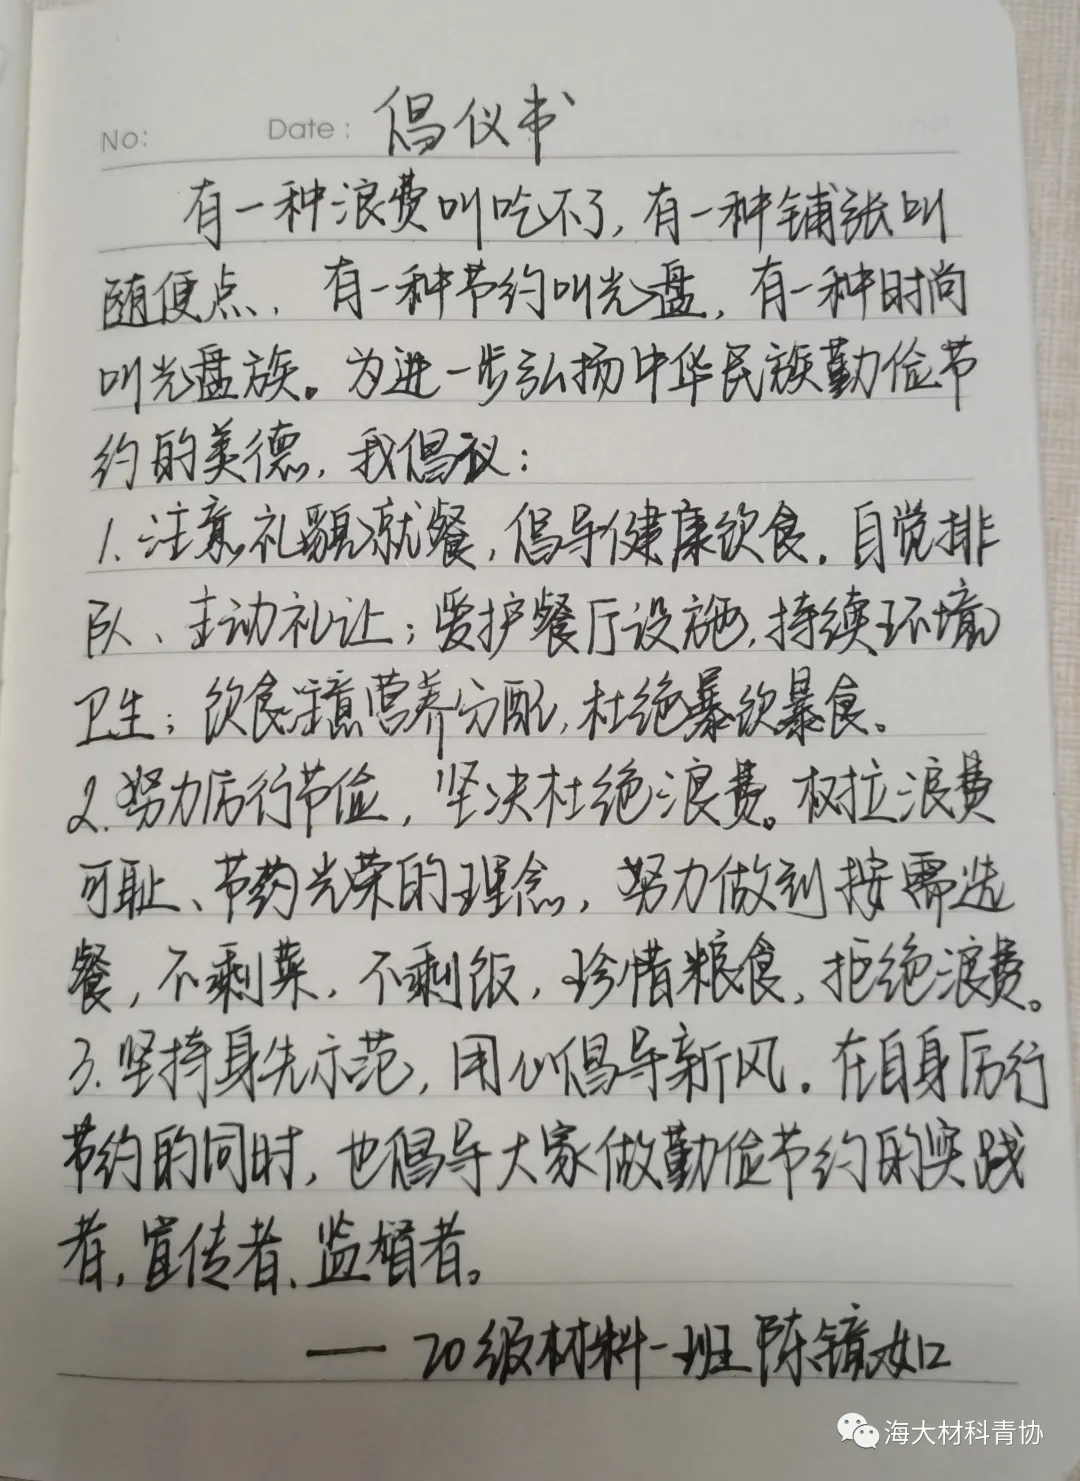 No: Date: 倡仪书
有一种浪费叫吃不了,有一种铺张叫
随便点,有一种节约叫光盘,有一种时尚
叫光盘族。为进一步弘扬中华民族勤俭节
约的美德,我倡议:
1.注意礼貌就餐,倡导健康饮食。自觉排
队、主动礼让;爱护餐厅设施,持续环境
卫生;饮食注意营养分配,杜绝暴饮暴食。
2.努力厉行节俭,坚决杜绝浪费。树立浪费
可耻、节约光荣的理念,努力做到按需选
餐,不剩菜,不剩饭,珍惜粮食,拒绝浪费。
3.坚持身先示范,用心倡导新风。在自身厉行
节约的同时,也倡导大家做勤俭节约的实践
者,宣传者、监督者。
——20级材料一班 陈镜如
海大材科青协